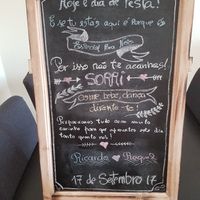 Hoje é dia de festa!
E se tu estás aqui é porque és
Especial Para Nós
Por isso não te acanhes!
SORRI
Come, bebe, dança
diverte-te!
Preparamos tudo com muito
carinho para que aproveites este dia
tanto quanto nós!
Ricardo Raquel
17 de Setembro 17